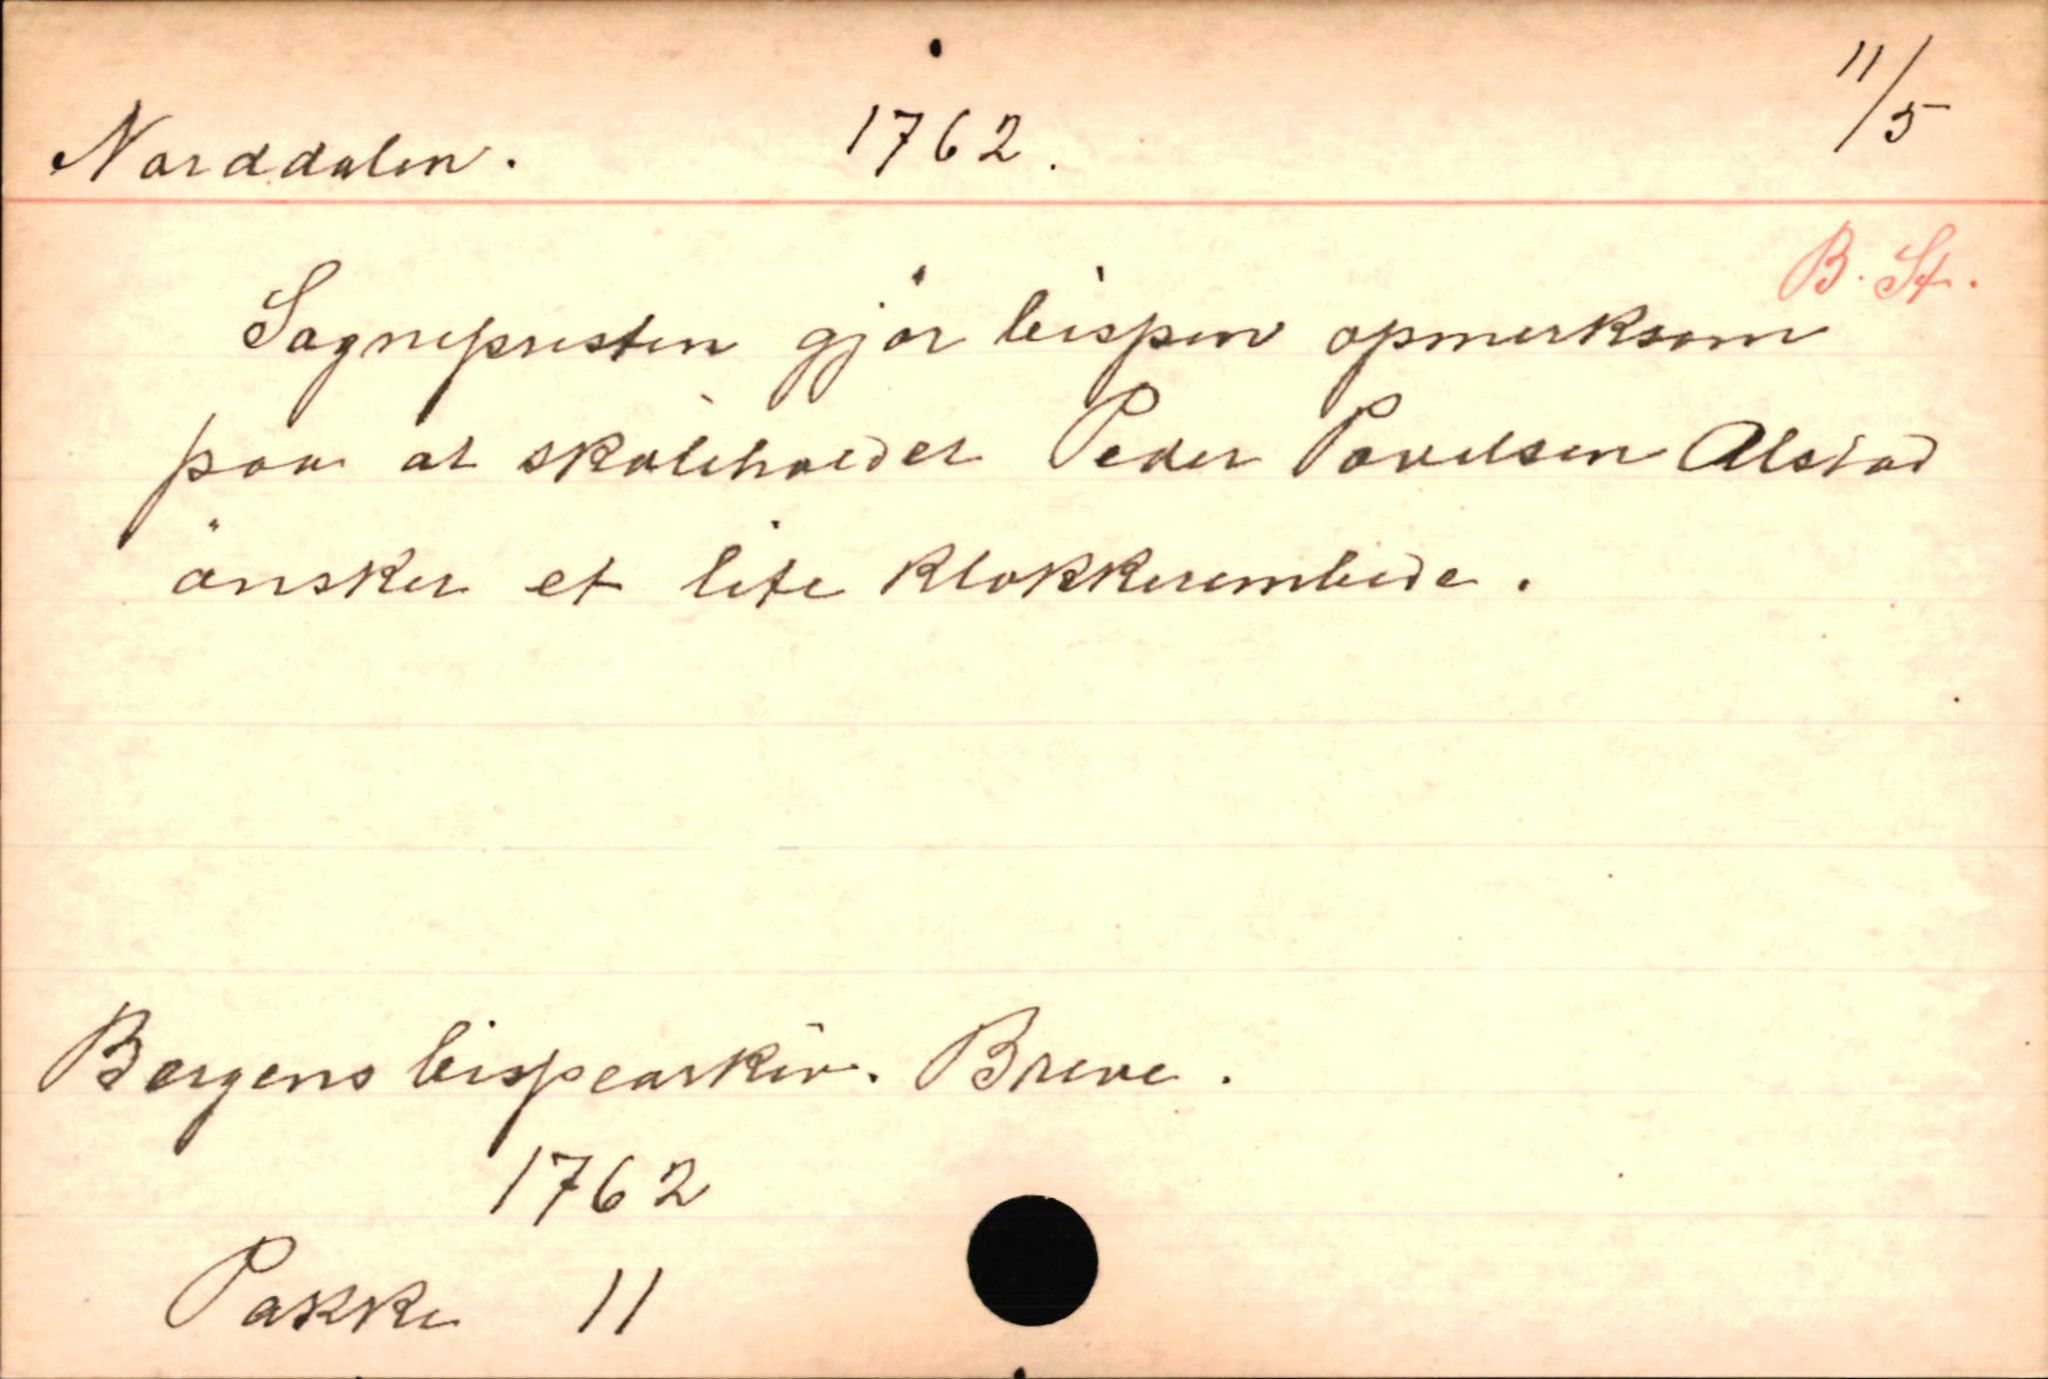 Norddalen. 1762. 11/5
B. St.
Sognepresten gjör bispen opmerksom
paa at skoleholder Peder Povelsen Alstad
önsker et lite klokkerembede.
Bergens bispearkiv. Breve.
1762
Pakke 11